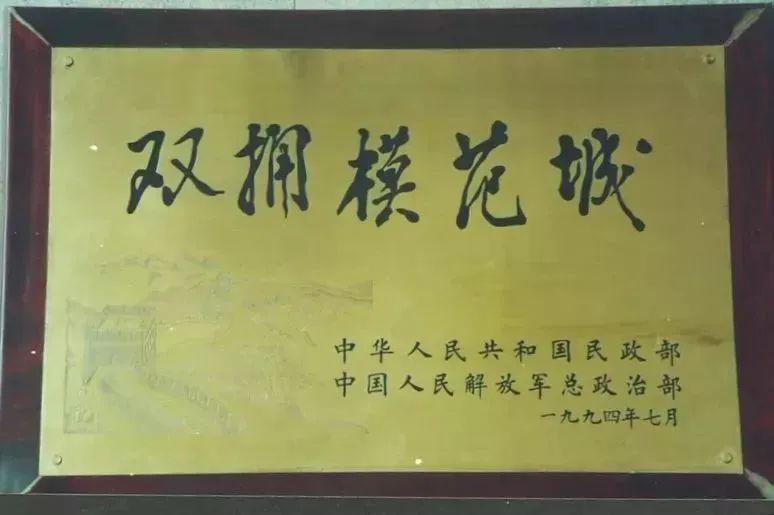 双拥模范城
中华人民共和国民政部
中国人民解放军总政治部
一九九四年七月